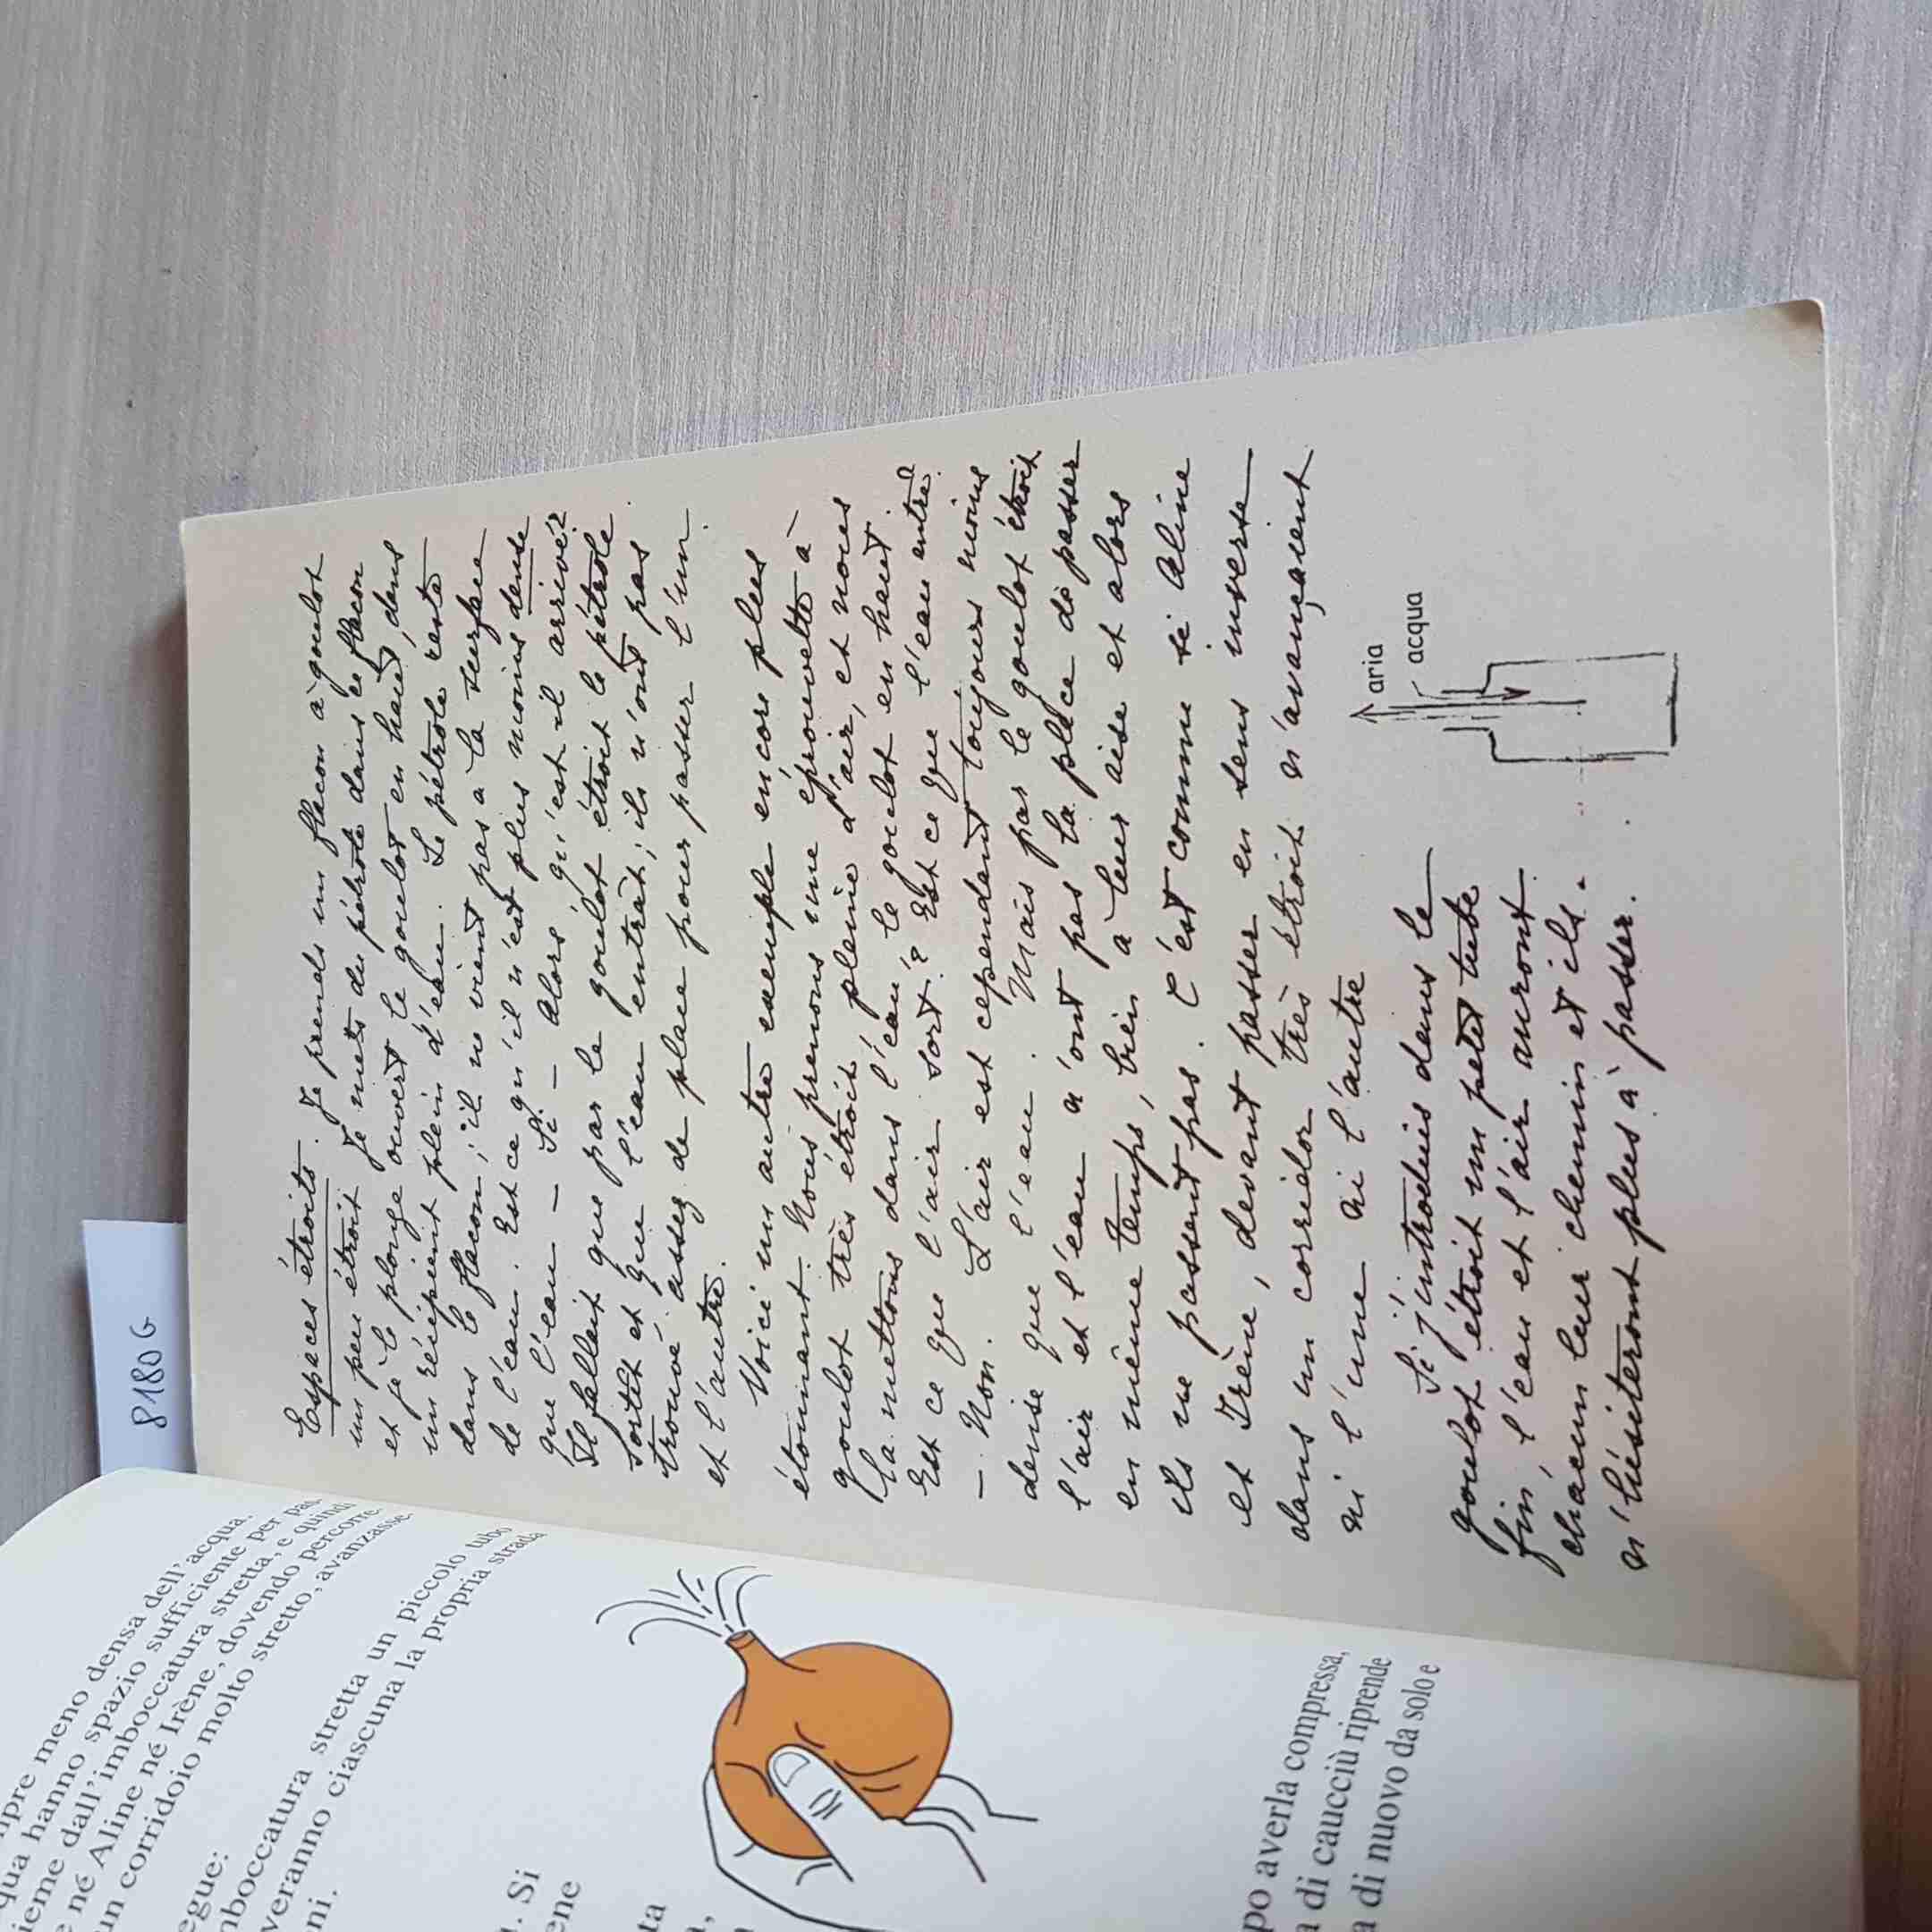 8180 G
Espaces étroits. Je prends un flacon à goulot
un peu étroit. Je mets du pétrole dans ce flacon
et je le plonge ouvert le goulot en haut, dans
un récipient plein d'eau. Le pétrole reste
dans le flacon ; il ne vient pas à la surface
de l'eau. Est ce qu'il n'est plus moins dense
que l'eau — Si — Alors qu'est il arrivé?
Il fallait que par le goulot étroit le pétrole
sortît et que l'eau entrât ; ils n'ont pas
trouvé assez de place pour passer l'un
et l'autre.
Voici un autre exemple encore plus
étonnant. Nous prenons une éprouvette à
goulot très étroit, pleine d'air, et nous
la mettons dans l'eau le goulot en haut.
Est ce que l'air sort? Est ce que l'eau entre?
— Non. L'air est cependant toujours moins
dense que l'eau. Mais par le goulot étroit
l'air et l'eau n'ont pas la place de passer
en même temps, bien à leur aise et alors
ils ne passent pas. C'est comme si Aline
et Irène, devant passer en sens inverse
dans un corridor très étroit n'avançaient
ni l'une ni l'autre
Si j'introduis dans le
goulot étroit un petit tube
fin l'eau et l'air auront
chacun leur chemin et ils
n'hésiteront plus à passer.
aria
acqua
pre meno densa dell'acqua.
qua hanno spazio sufficiente per pas-
ieme dall'imboccatura stretta, e quindi
e né Aline né Irène, dovendo percorre-
un corridoio molto stretto, avanzasse.
egue:
mboccatura stretta un piccolo tubo
veranno ciascuna la propria strada
ni.
. Si
ene
ta
po averla compressa,
a di caucciù riprende
a di nuovo da solo e